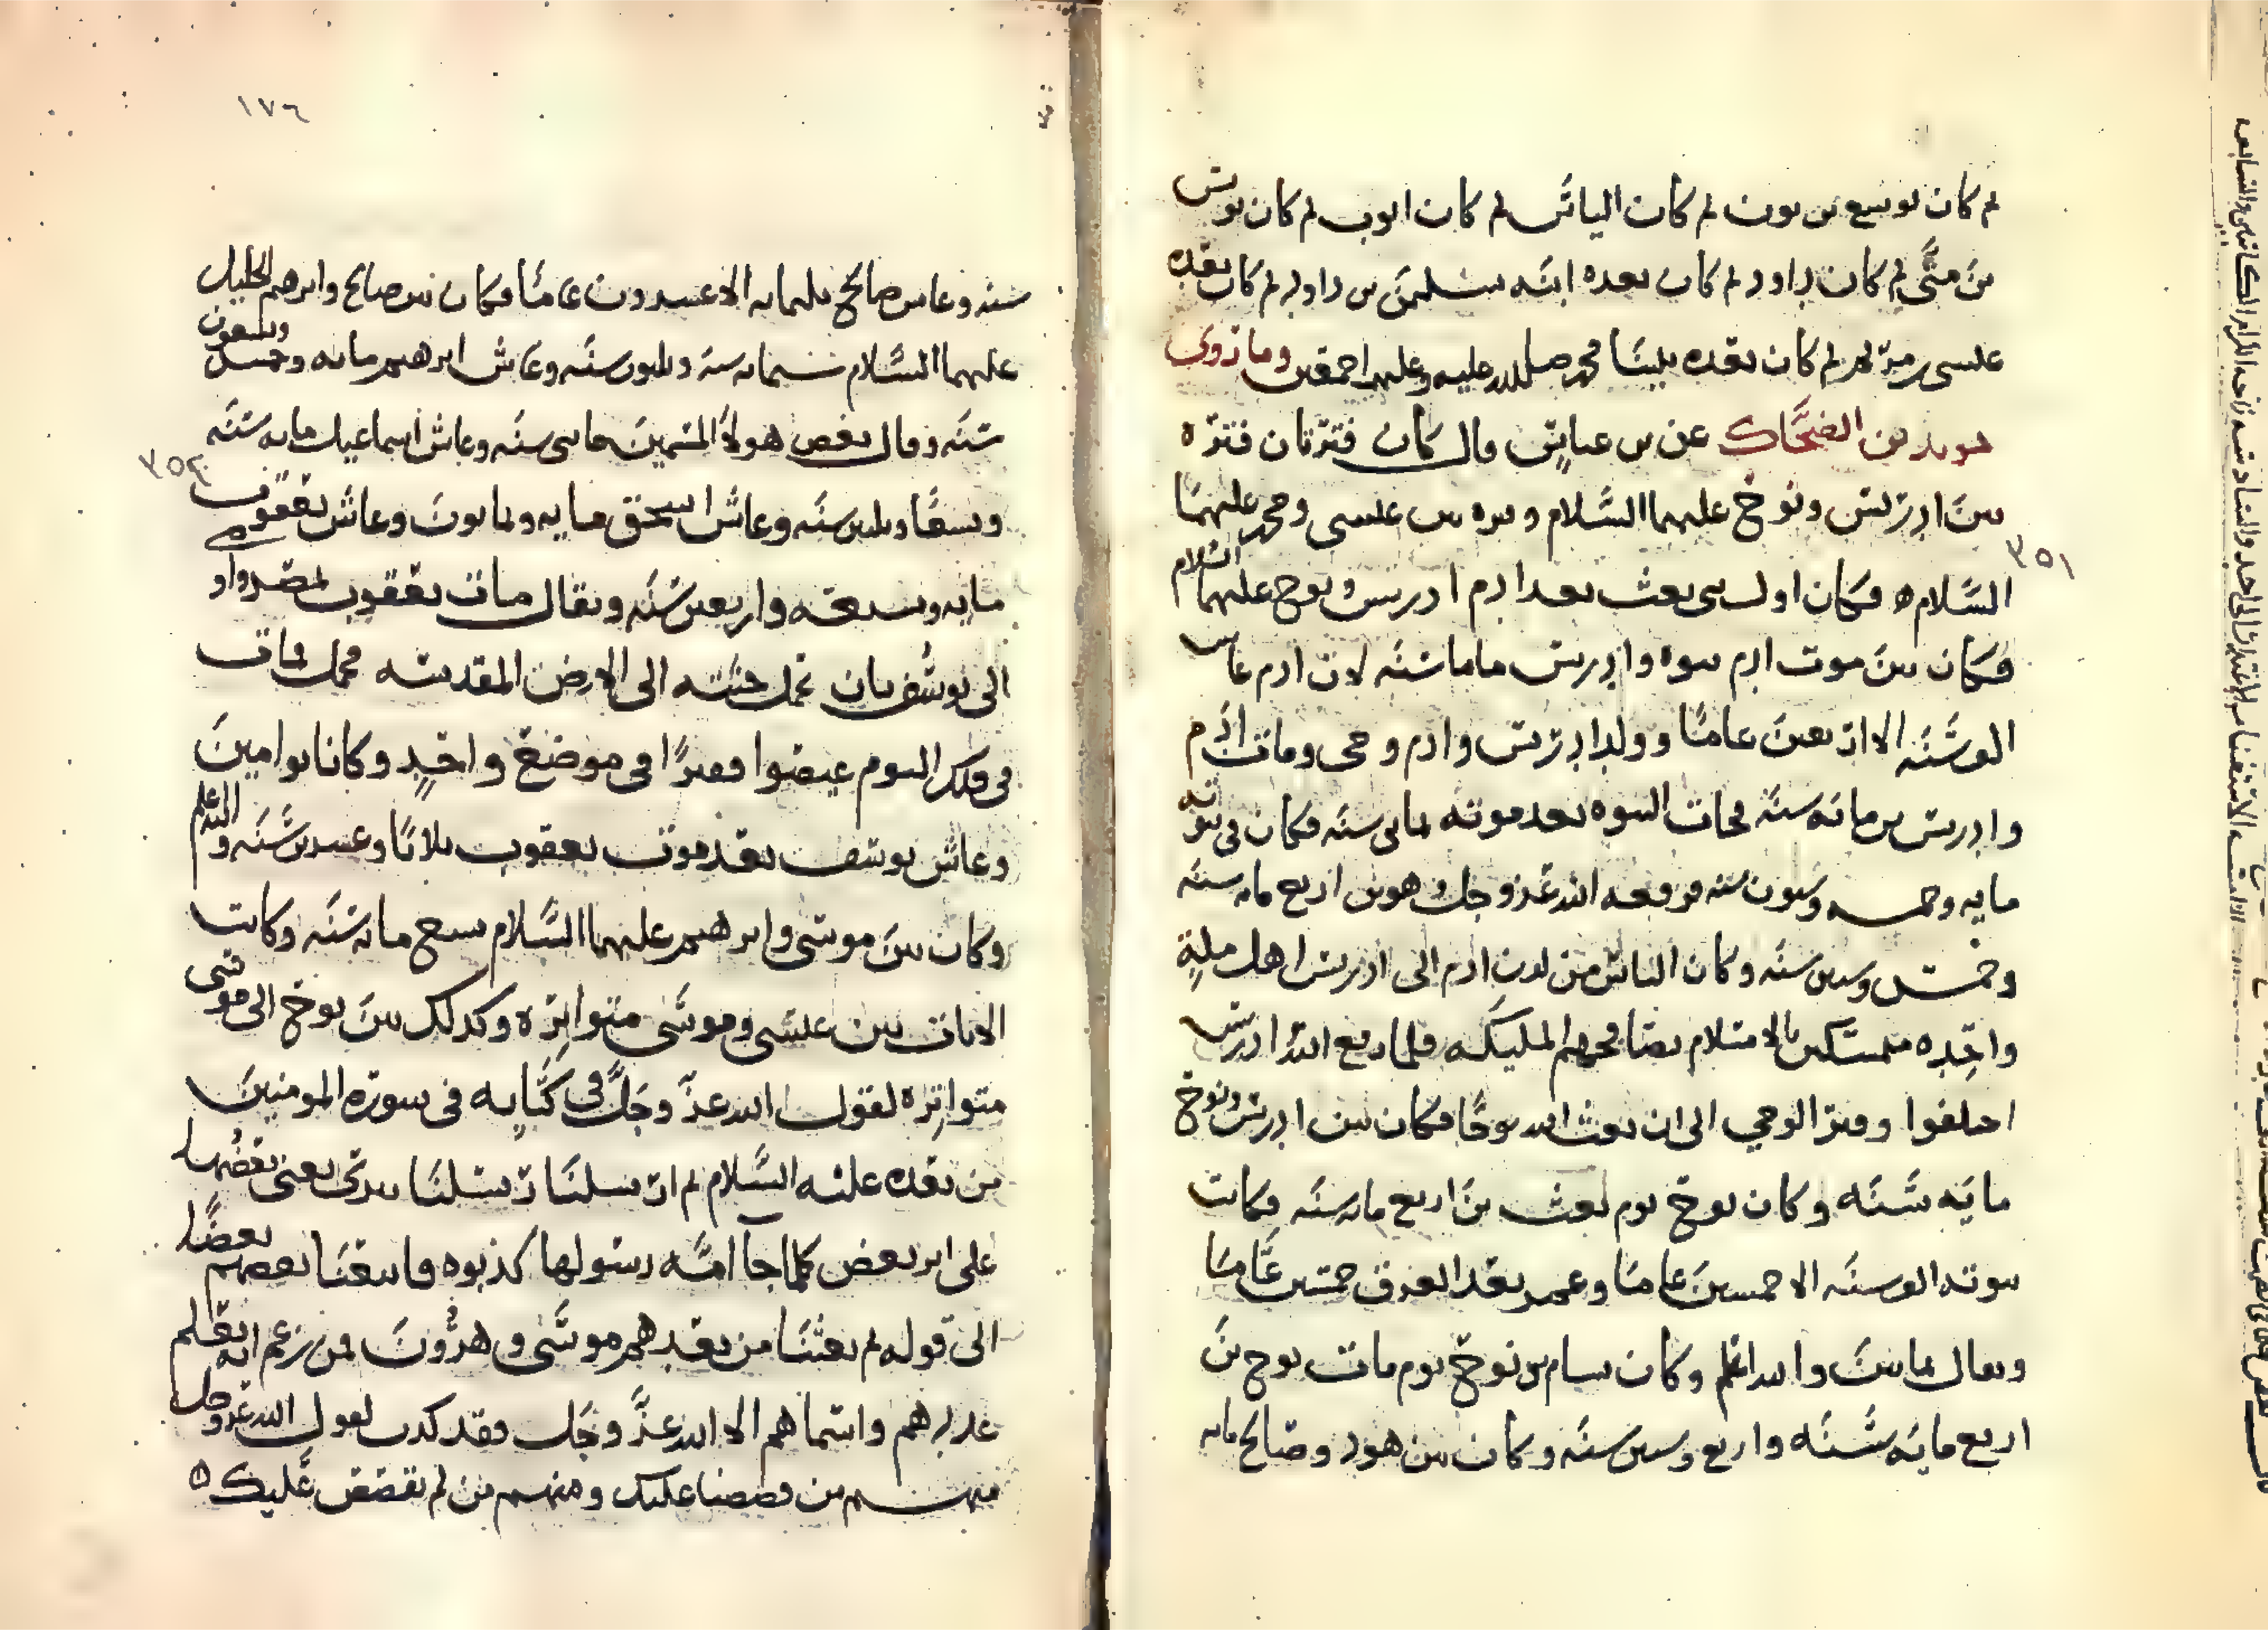 ثم كان يوشع بن نون ثم كان الياس ثم كان ايوب ثم كان يونس
بن متى ثم كان داود ثم كان بعده ابنه سليمن بن داود ثم كان بعده
عيسى بن مريم ثم كان بعده نبينا محمد صلى الله عليه وعليهم اجمعين وما روى
جويبر بن الضحاك عن بن عباس قال كان فترتان فترة
بين ادريس ونوح عليهما السلام وفترة بين عيسى ومحمد عليهما
٣٥١
السلام فكان اول نبى بعث بعد ادم ادريس ونوح عليهما السلام
فكان بين موت ادم ونبوة وادريس مايتا سنه لان ادم عاش
الف سنه الا اربعين عاما وولد ادريس وادم وحى ومات ادم
وادريس بن مائه سنه فجات النبوه بعد موته بمايتى سنه فكان فى نبوته
مايه وخمسه وستون سنه فرفعه الله عز وجل وهو بن اربع مايه سنه
وخمس وستين سنه وكان الناس من لدن ادم الى ادريس اهل ملة
واحده متمسكين بالاسلام تصافحهم المليكه فلما رفع الله ادريس
اختلفوا وفتر الوحي الى ان بعث الله نوحا فكان بين ادريس ونوح
مايه سنه وكان نوح يوم بعث بن اربع مايه سنه فكانت
نبوته الف سنه الا خمسين عاما وعمر بعد الغرق خمسين عاما
ويقال مايتين والله اعلم وكان سام بن نوح يوم مات نوح بن
اربع مايه سنه واربع وستين سنه وكان بين هود وصالح مايه
١٧٦
سنه وعاش صالح ثلثمايه الا عشرون عاما وكان بين صالح وابرهيم الخليل
عليهما السلام ستمايه سنه وثلثون سنه وعاش ابرهيم مايه وخمس وسبعون
سنه وقال بعض هولاء المسمين مايتى سنه وعاش اسماعيل مايه سنه
٣٥٢
وسبعا وثلثين سنه وعاش اسحق مايه وثمانون وعاش يعقوب
مايه وسبعه واربعين سنه ويقال مات يعقوب بمصر واوصى
الى يوسف بان تحمل جثته الى الارض المقدسه فحمل فمات
فى ذلك اليوم عيصوا فقبرا فى موضع واحد وكانا توامين
وعاش يوسف بعد موت يعقوب ثلاثا وعشرين سنه والله اعلم
وكان بين موسى وابرهيم عليهما السلام سبع مايه سنه وكانت
الانبيات بين عيسى وموسى متواترة وكذلك بين نوح الى موسى
متواترة لقول الله عز وجل فى كتابه فى سورة المومنين
من بعده عليه السلام ثم ارسلنا رسلنا تترى يعنى بعضها
على اثر بعض كلما جا امه رسولها كذبوه فاتبعنا بعضهم بعضا
الى قوله ثم بعثنا من بعدهم موسى وهرون فمن زعم انه يعلم
عددهم واسماهم الا الله عز وجل فقد كذب لقول الله عز وجل
منهم من قصصنا عليك ومنهم من لم نقصص عليك